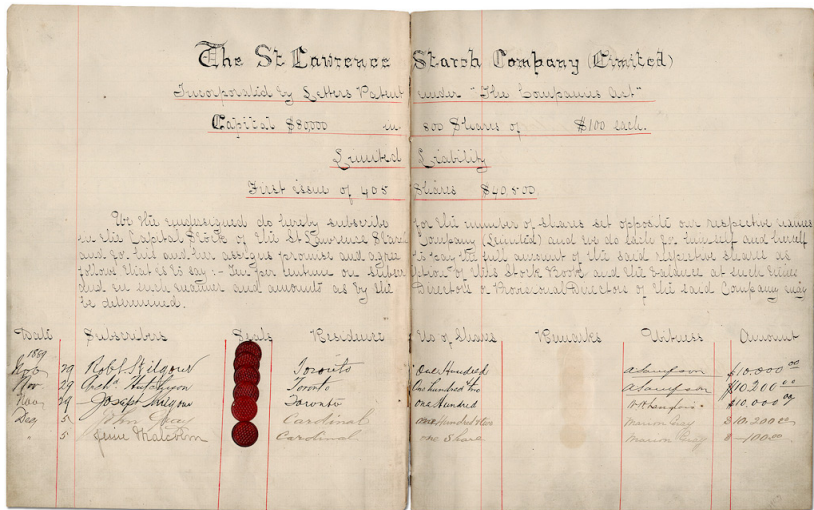 The St Lawrence Starch Company (Limited)
Incorporated by Letters Patent under "The Companies Act"
Capital $80000 in 800 Shares of $100 each.
Limited Liability
First issue of 405 Shares $40,500.
We the undersigned do hereby subscribe for the number of shares set opposite our respective names
in the Capital Stock of the St Lawrence Starch Company (Limited) and we do each for himself and herself
and for his and her assigns promise and agree to pay the full amount of the said respective shares as
follows that is to say :- Ten per centum on Stock Book and the balance at such times
and in such manner and amounts as by the Directors or Provisional Directors of the said Company may
be determined.
Date Subscribers Seals Residence No of Shares Remarks Witness Amount
1889
Nov 29 Robt Kilgour Toronto One Hundred $10,000 00
Nov. 29 Archd Hutchison Toronto One hundred two $10,200 00
Nov 29 Joseph Kilgour Toronto One Hundred $10,000 00
Dec 5 John Gray Cardinal one Hundred two Marion Gray $10,200 00
" 5 Jessie Malcolm Cardinal one Share Marion Gray $ -100 00